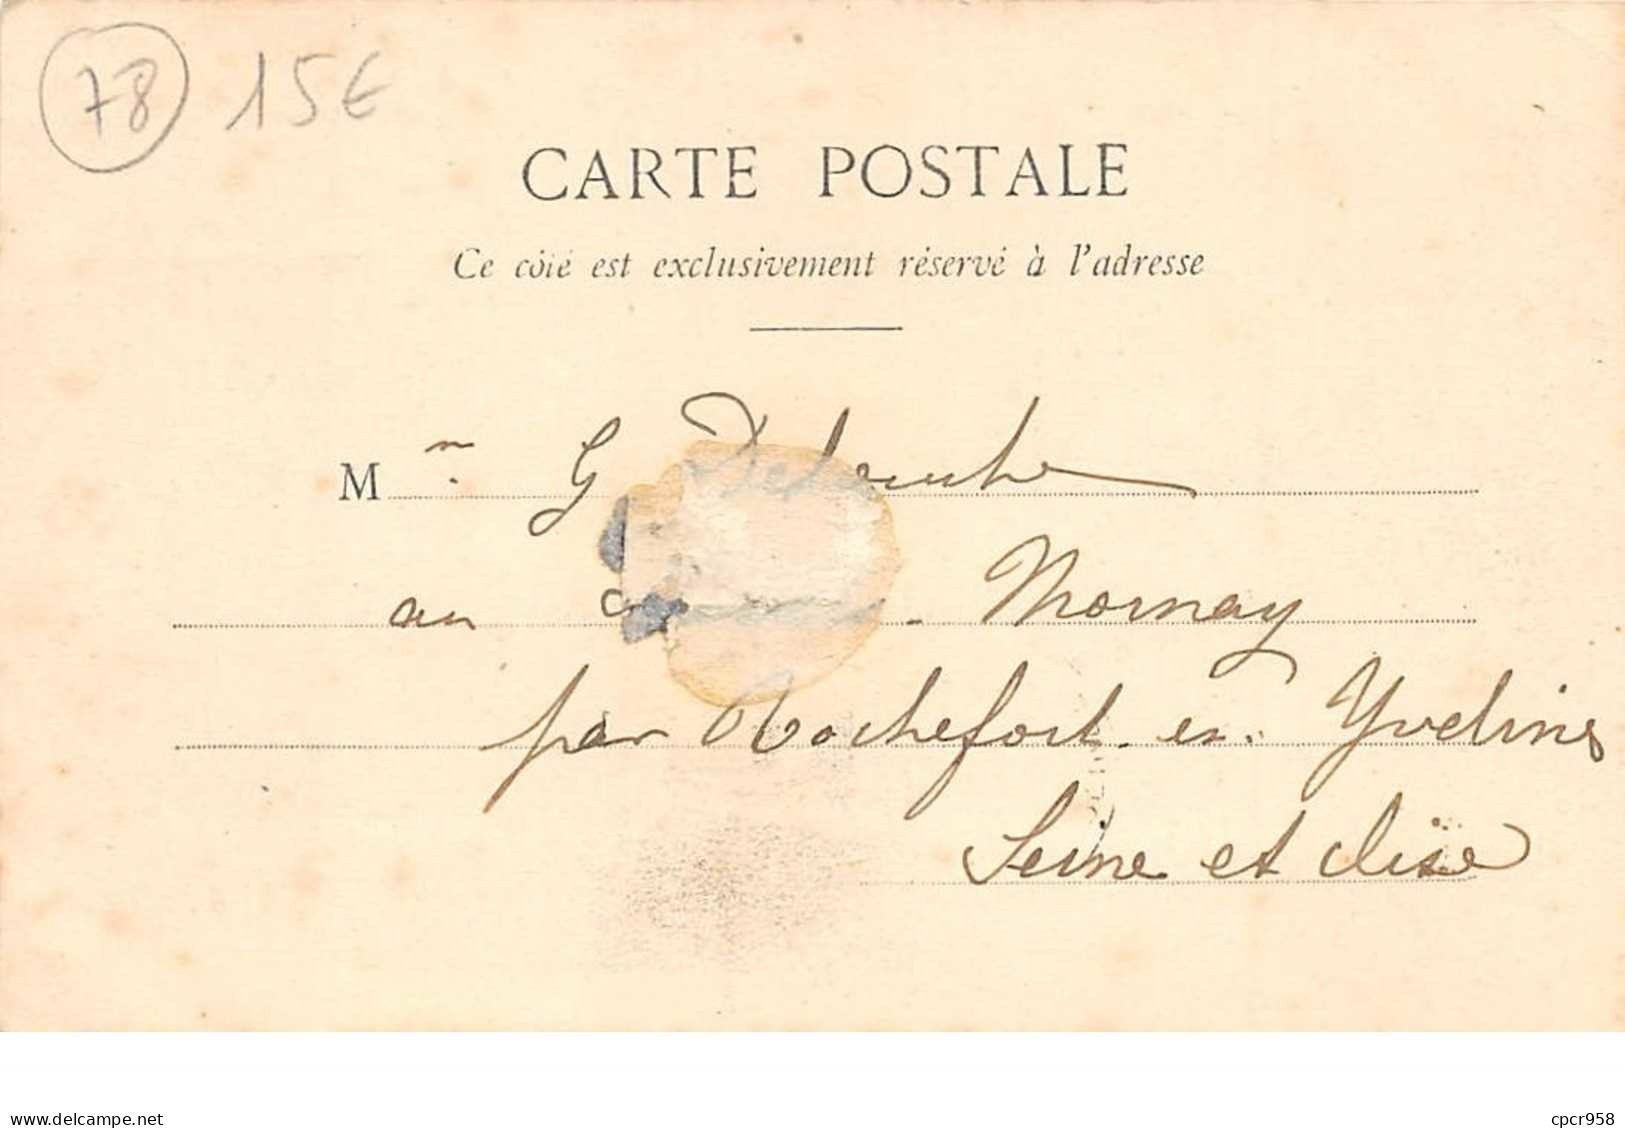 78 15€
CARTE POSTALE
Ce côté est exclusivement réservé à l'adresse
M r G Delouche
au Mornay
par Rochefort en Yvelines
Seine et Oise
www.delcampe.net cpcr958